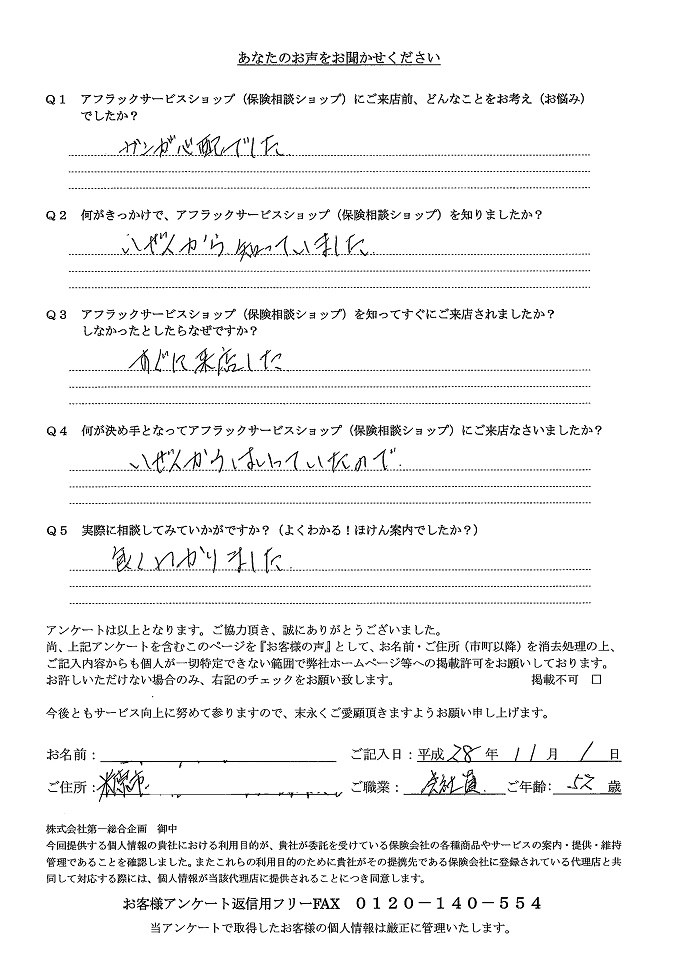 あなたのお声をお聞かせください
Q1 アフラックサービスショップ（保険相談ショップ）にご来店前、どんなことをお考え（お悩み）
でしたか？
ガンが心配でした
Q2 何がきっかけで、アフラックサービスショップ（保険相談ショップ）を知りましたか？
いぜんから知っていました
Q3 アフラックサービスショップ（保険相談ショップ）を知ってすぐにご来店されましたか？
しなかったとしたらなぜですか？
すぐに来店した
Q4 何が決め手となってアフラックサービスショップ（保険相談ショップ）にご来店なさいましたか？
いぜんからはいっていたので
Q5 実際に相談してみていかがですか？（よくわかる！ほけん案内でしたか？）
良くわかりました
アンケートは以上となります。ご協力頂き、誠にありがとうございました。
尚、上記アンケートを含むこのページを『お客様の声』として、お名前・ご住所（市町以降）を消去処理の上、
ご記入内容からも個人が一切特定できない範囲で弊社ホームページ等への掲載許可をお願いしております。
お許しいただけない場合のみ、右記のチェックをお願い致します。 掲載不可 □
今後ともサービス向上に努めて参りますので、末永くご愛顧頂きますようお願い申し上げます。
お名前： ご記入日：平成 28 年 11 月 1 日
ご住所： 市 ご職業： 会社員 ご年齢： 52 歳
株式会社第一総合企画 御中
今回提供する個人情報の貴社における利用目的が、貴社が委託を受けている保険会社の各種商品やサービスの案内・提供・維持
管理であることを確認しました。またこれらの利用目的のために貴社がその提携先である保険会社に登録されている代理店と共
同して対応する際には、個人情報が当該代理店に提供されることにつき同意します。
お客様アンケート返信用フリーFAX 0120－140－554
当アンケートで取得したお客様の個人情報は厳正に管理いたします。